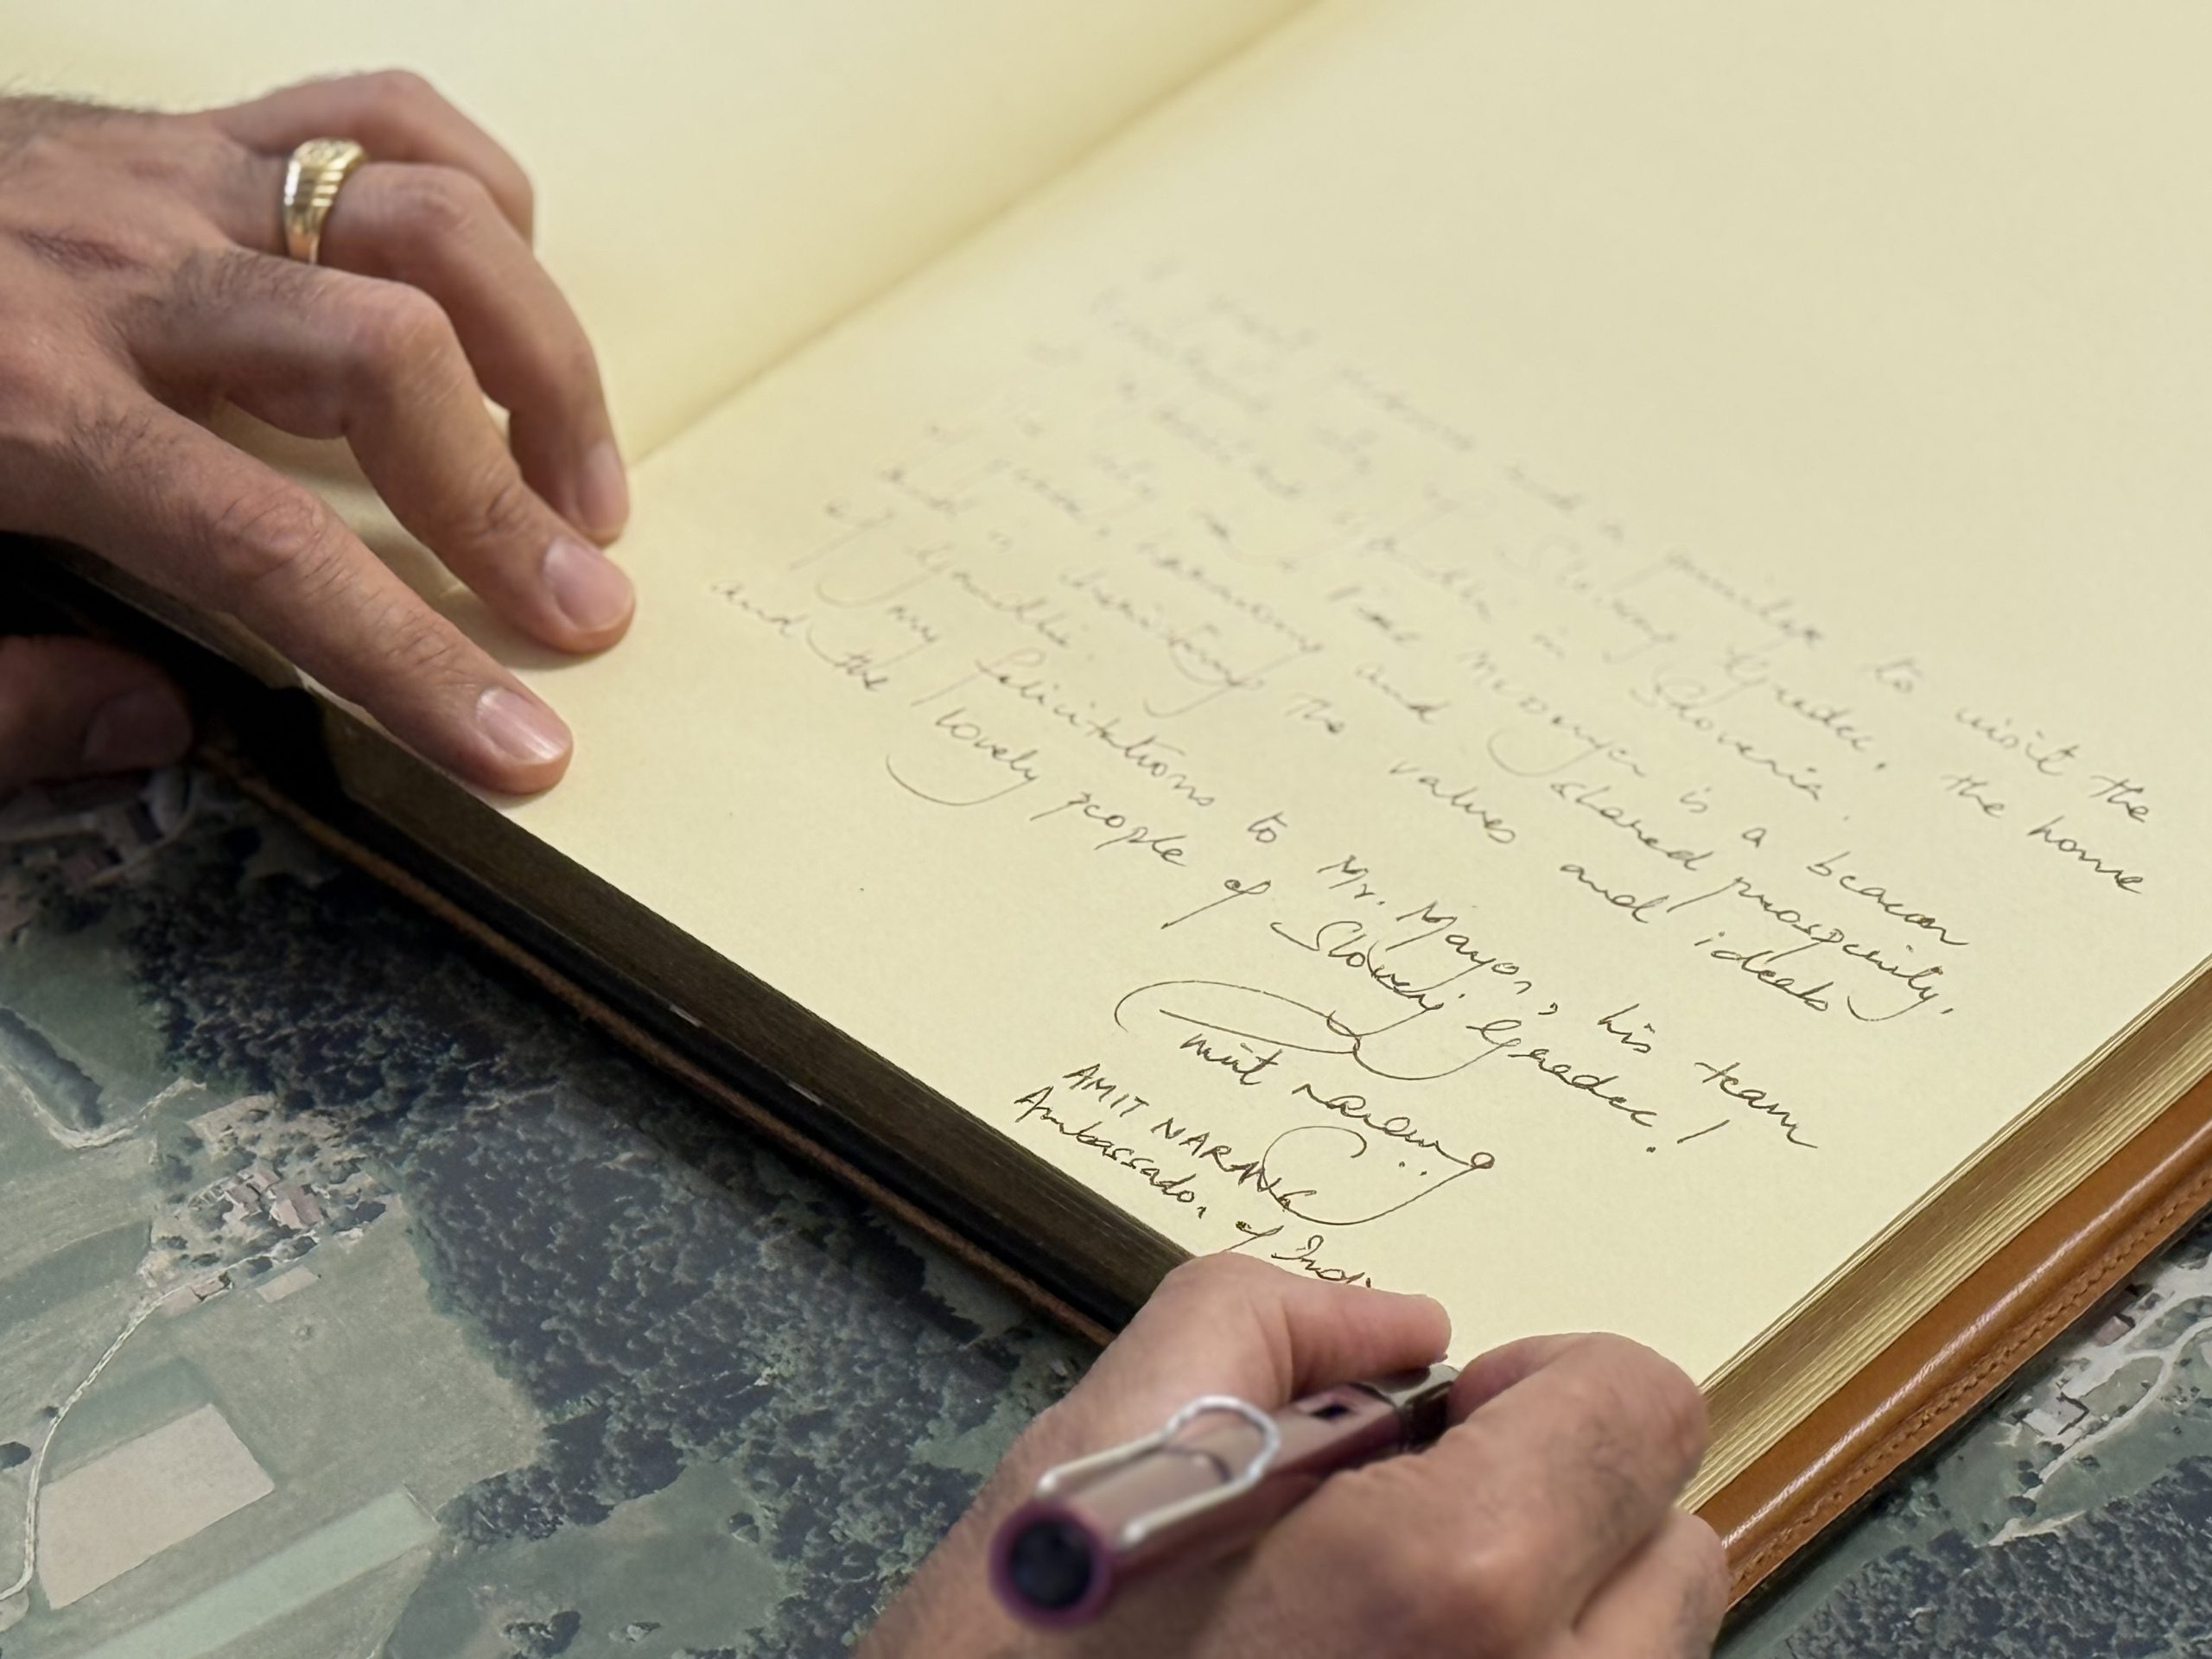 and a privilege to visit the
city of Slovenj Gradec, the home
of Gandhi in Slovenia.
city as a Peace Messenger is a beacon
of peace, harmony and shared prosperity,
and in cherishing the values and ideals
of Gandhi.
my felicitations to Mr. Mayor, his team
and the lovely people of Slovenj Gradec!
Amit Narang
AMIT NARANG
Ambassador of